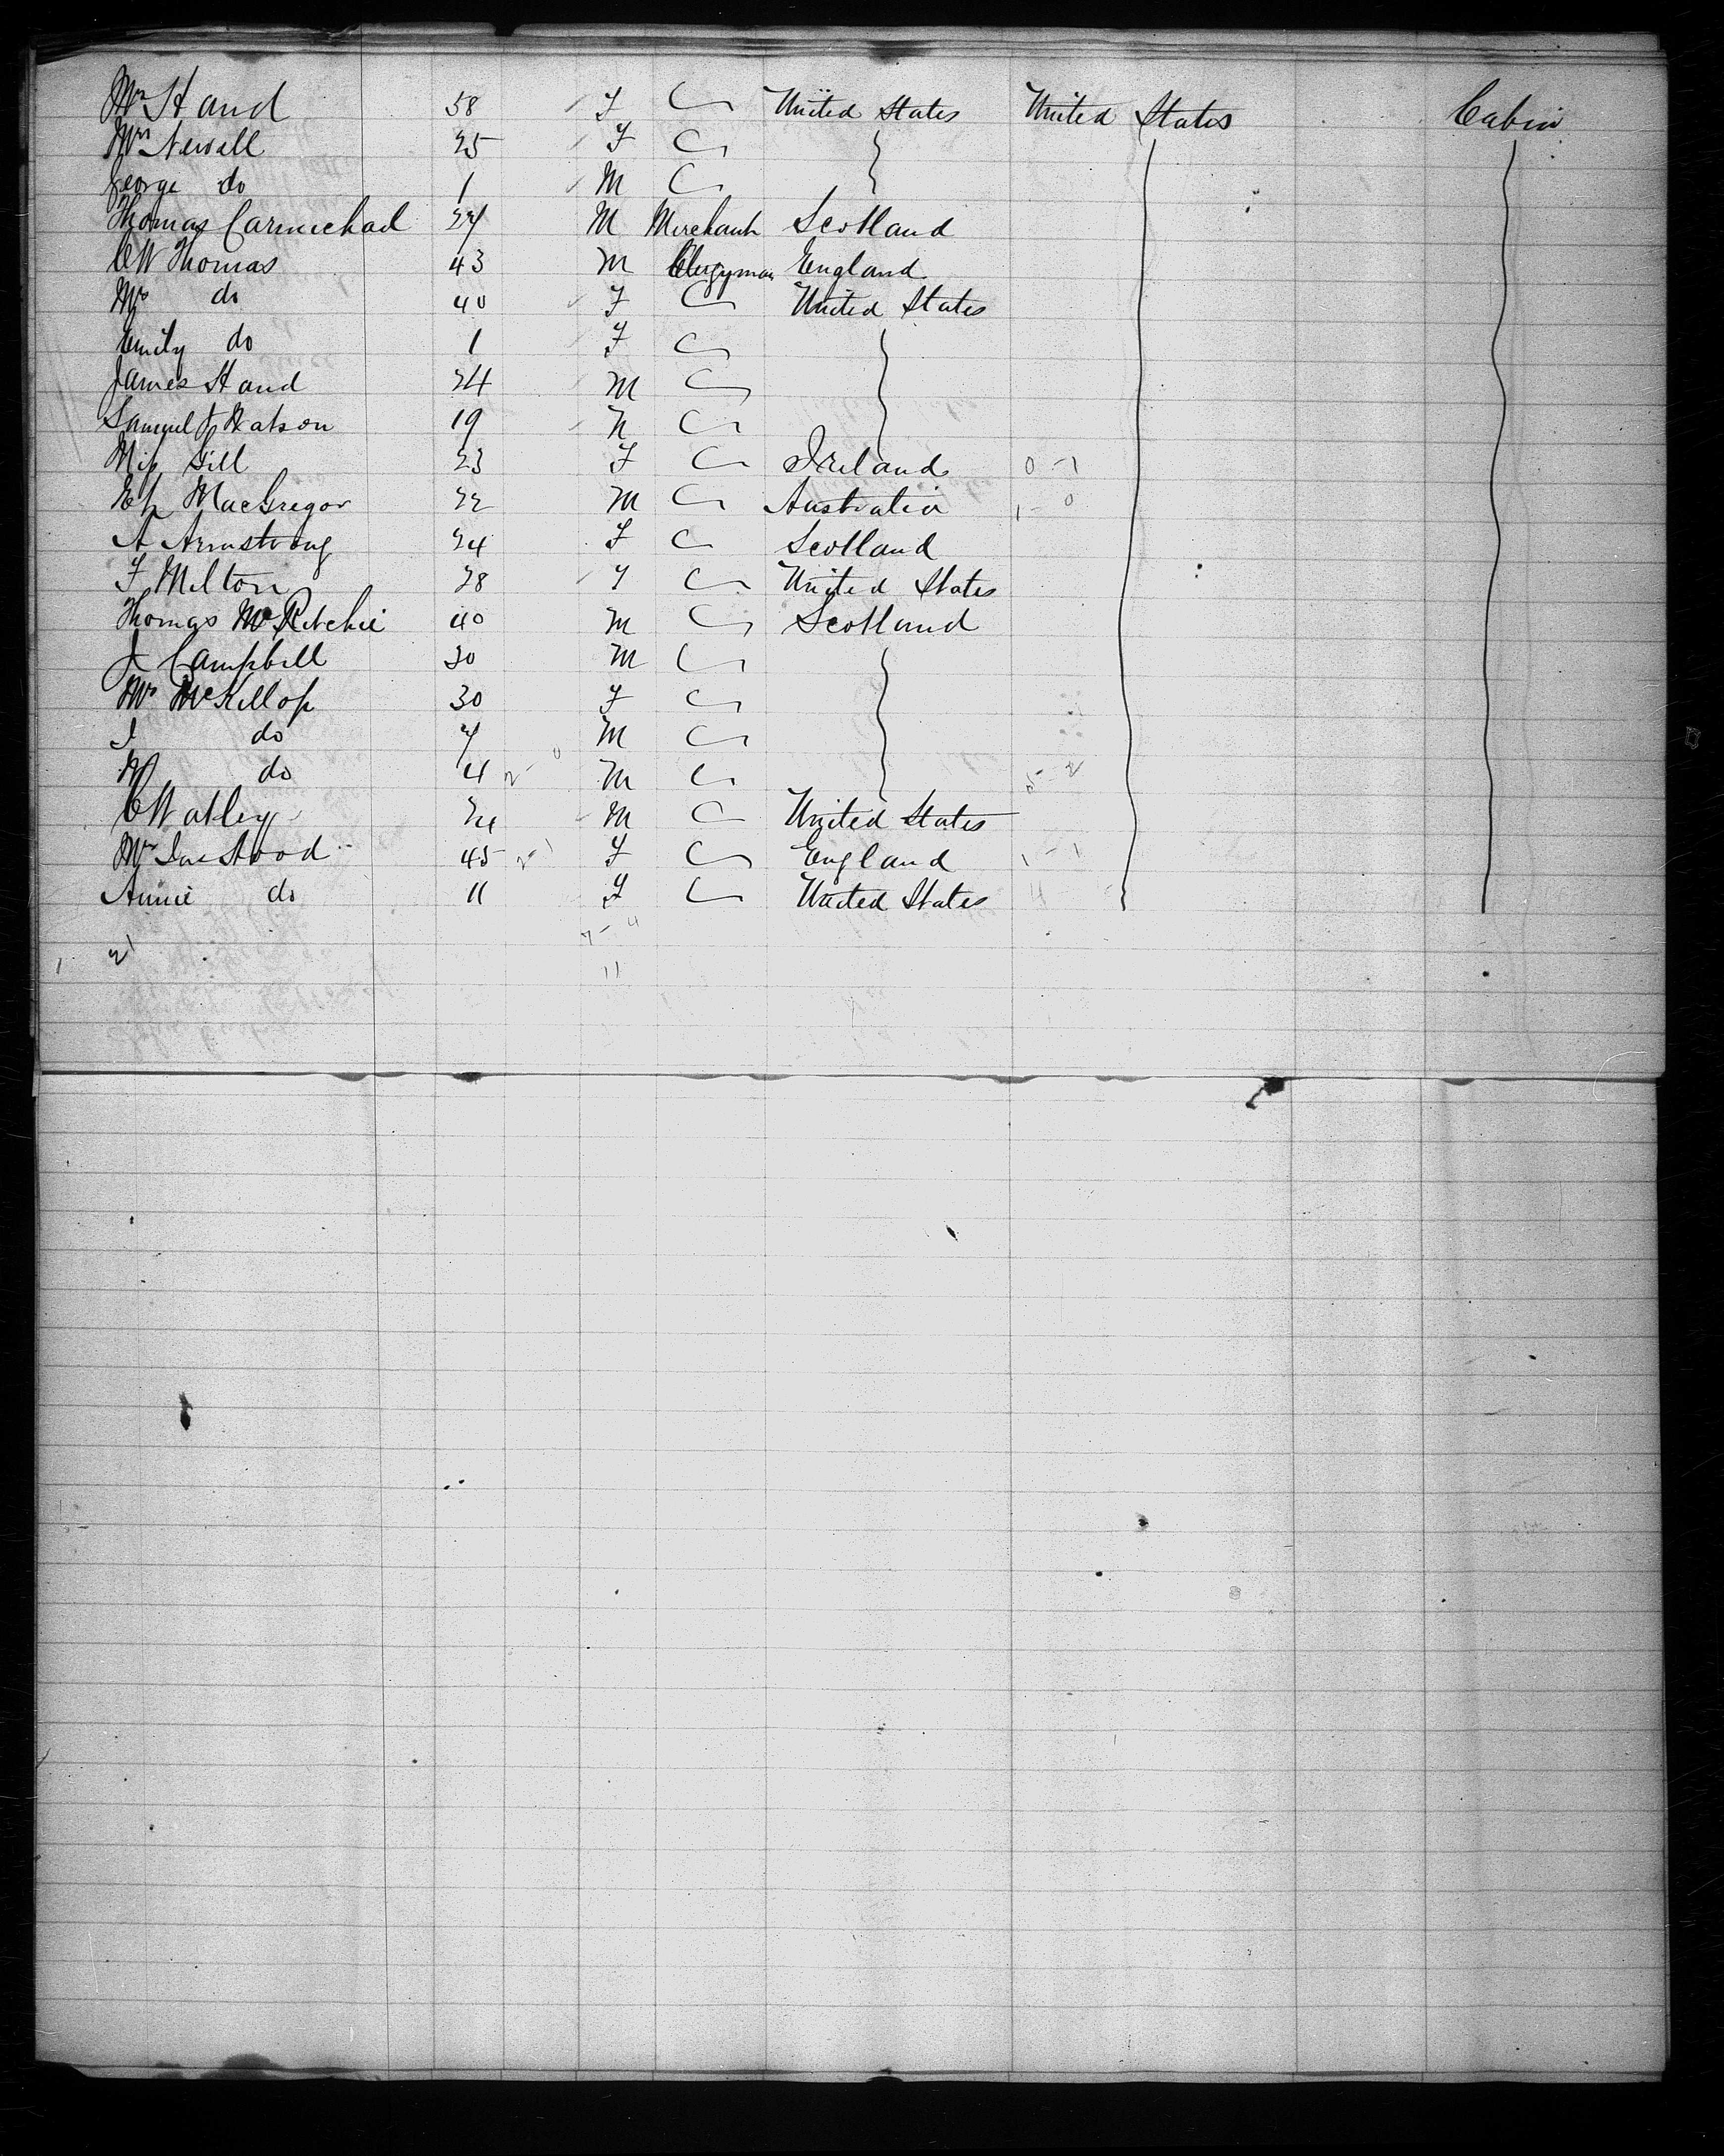 Mrs Hand 58 F United States United States Cabin
Mrs Newell 25 F
George do 1 M
Thomas Carmichael 27 M Merchant Scotland
W Thomas 43 M Clergyman England
Mrs do 40 F United States
Emily do 1 F
James Hand 24 M
Samuel J Watson 19 M
Miss Gill 23 F Ireland 0-1
MacGregor 22 M Australia 1-0
A Armstrong 24 F Scotland
F Milton 28 F United States
Thomas McRitchie 40 M Scotland
J Campbell 30 M
Mrs McKillop 30 F
J do 7 M
W do 4 2-0 M 5-2
C Watley 24 M United States
Mrs 45 2-1 F England 1-1
Annie do 11 F United States 11
7-4
1 21
11